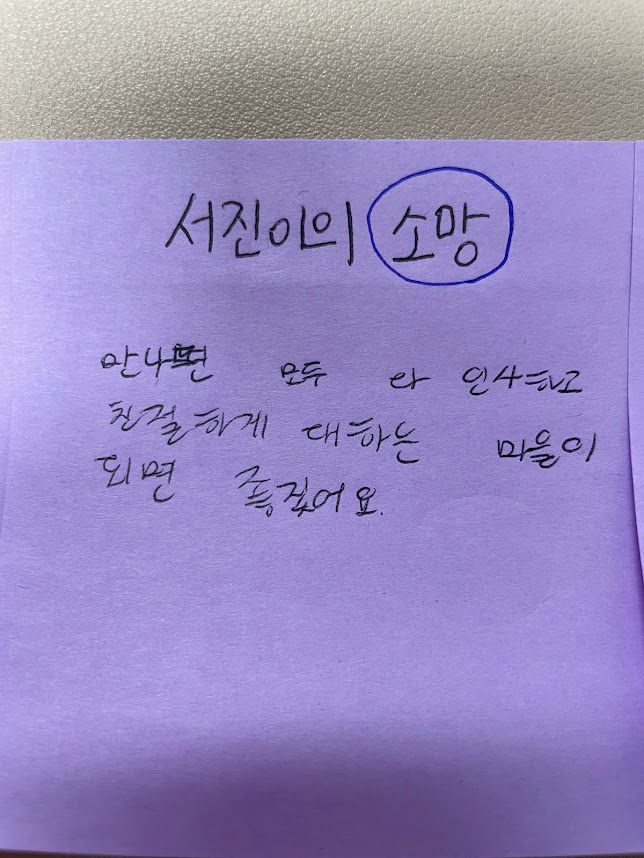 서진이의 소망
만나면 모두 다 인사하고
친절하게 대하는 마을이
되면 좋겠어요.